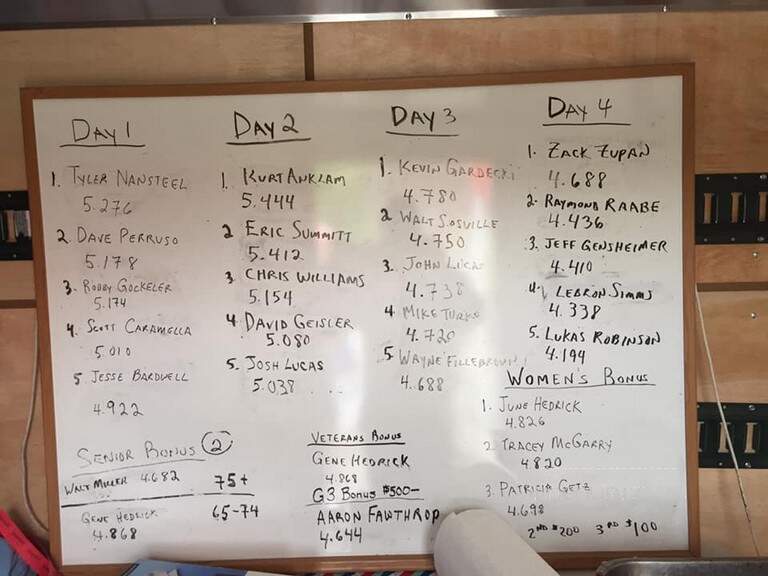 DAY 1
1. TYLER NANSTEEL
5.276
2. DAVE PERRUSO
5.178
3. ROBBY GOCKELER
5.174
4. SCOTT CARAMELLA
5.010
5. JESSE BARDWELL
4.922
DAY 2
1. KURT ANKLAM
5.444
2 ERIC SUMMITT
5.412
3 CHRIS WILLIAMS
5.154
4. DAVID GEISLER
5.080
5. JOSH LUCAS
5.038
DAY 3
1. KEVIN GARDECKI
4.780
2. WALT SOSVILLE
4.750
3. JOHN LUCAS
4.738
4 MIKE
4.720
5 WAYNE FILLEBROWN
4.688
DAY 4
1. ZACK ZUPAN
4.688
2. RAYMOND RAABE
4.436
3. JEFF GENSHEIMER
4.410
4. LEBRON SIMMS
4.338
5. LUKAS ROBINSON
4.194
WOMEN'S BONUS
1. JUNE HEDRICK
4.826
2. TRACEY MCGARRY
4.820
3. PATRICIA GETZ
4.698
2ND $200 3RD $100
SENIOR BONUS 2
WALT MILLER 4.682 75+
GENE HEDRICK 65-74
4.868
VETERANS BONUS
GENE HEDRICK
4.868
G3 BONUS $500-
AARON FAWTHROP
4.644